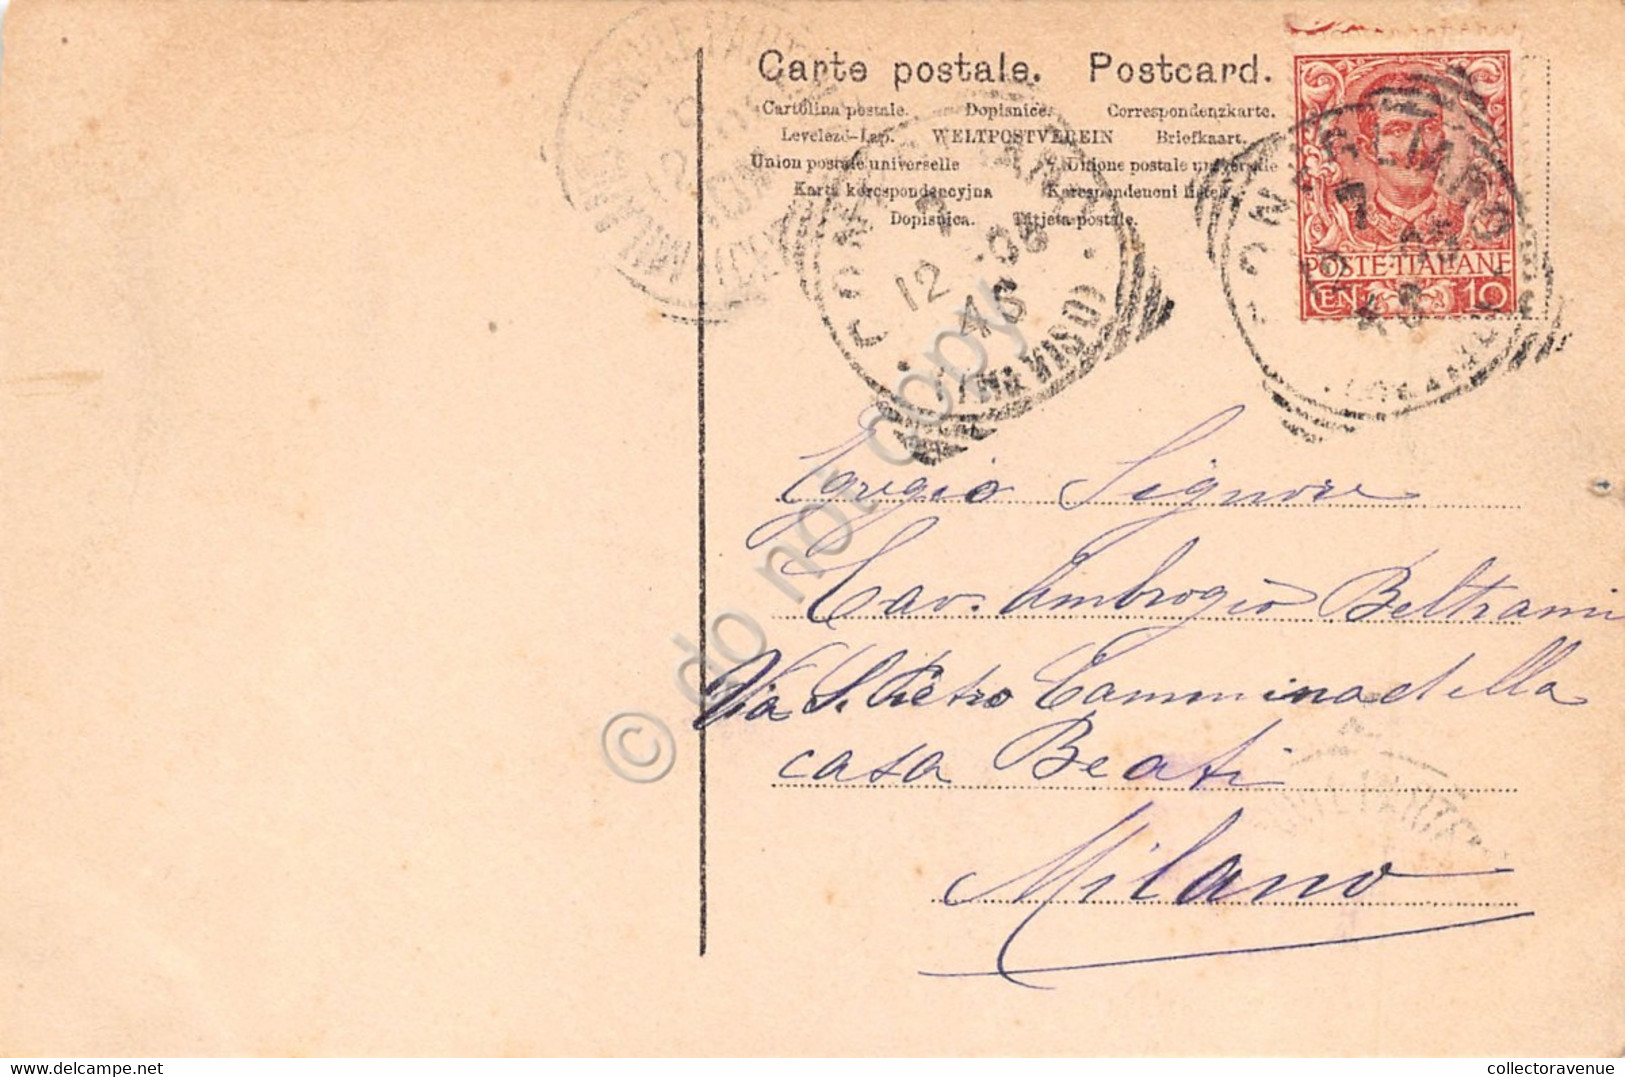 Carte postale. Postcard.
Cartolina postale. Dopisnice. Correspondenzkarte.
Levelezö-Lap. WELTPOSTVEREIN Briefkaart.
Union postale universelle Unione postale universelle
Karta korespondencyjna Korespondencni listek
Dopisnica. Tarjeta postale.
CONEGLIANO
7
12 05
POSTE·ITALIANE
CEN. 10
7
12 -05
4S
(TREVISO)
MILANO
12
Egregio Signore
Cav. Ambrogio Beltrami
Via S. Pietro Camminadella
casa Beati
Milano
© do not copy
collectoravenue